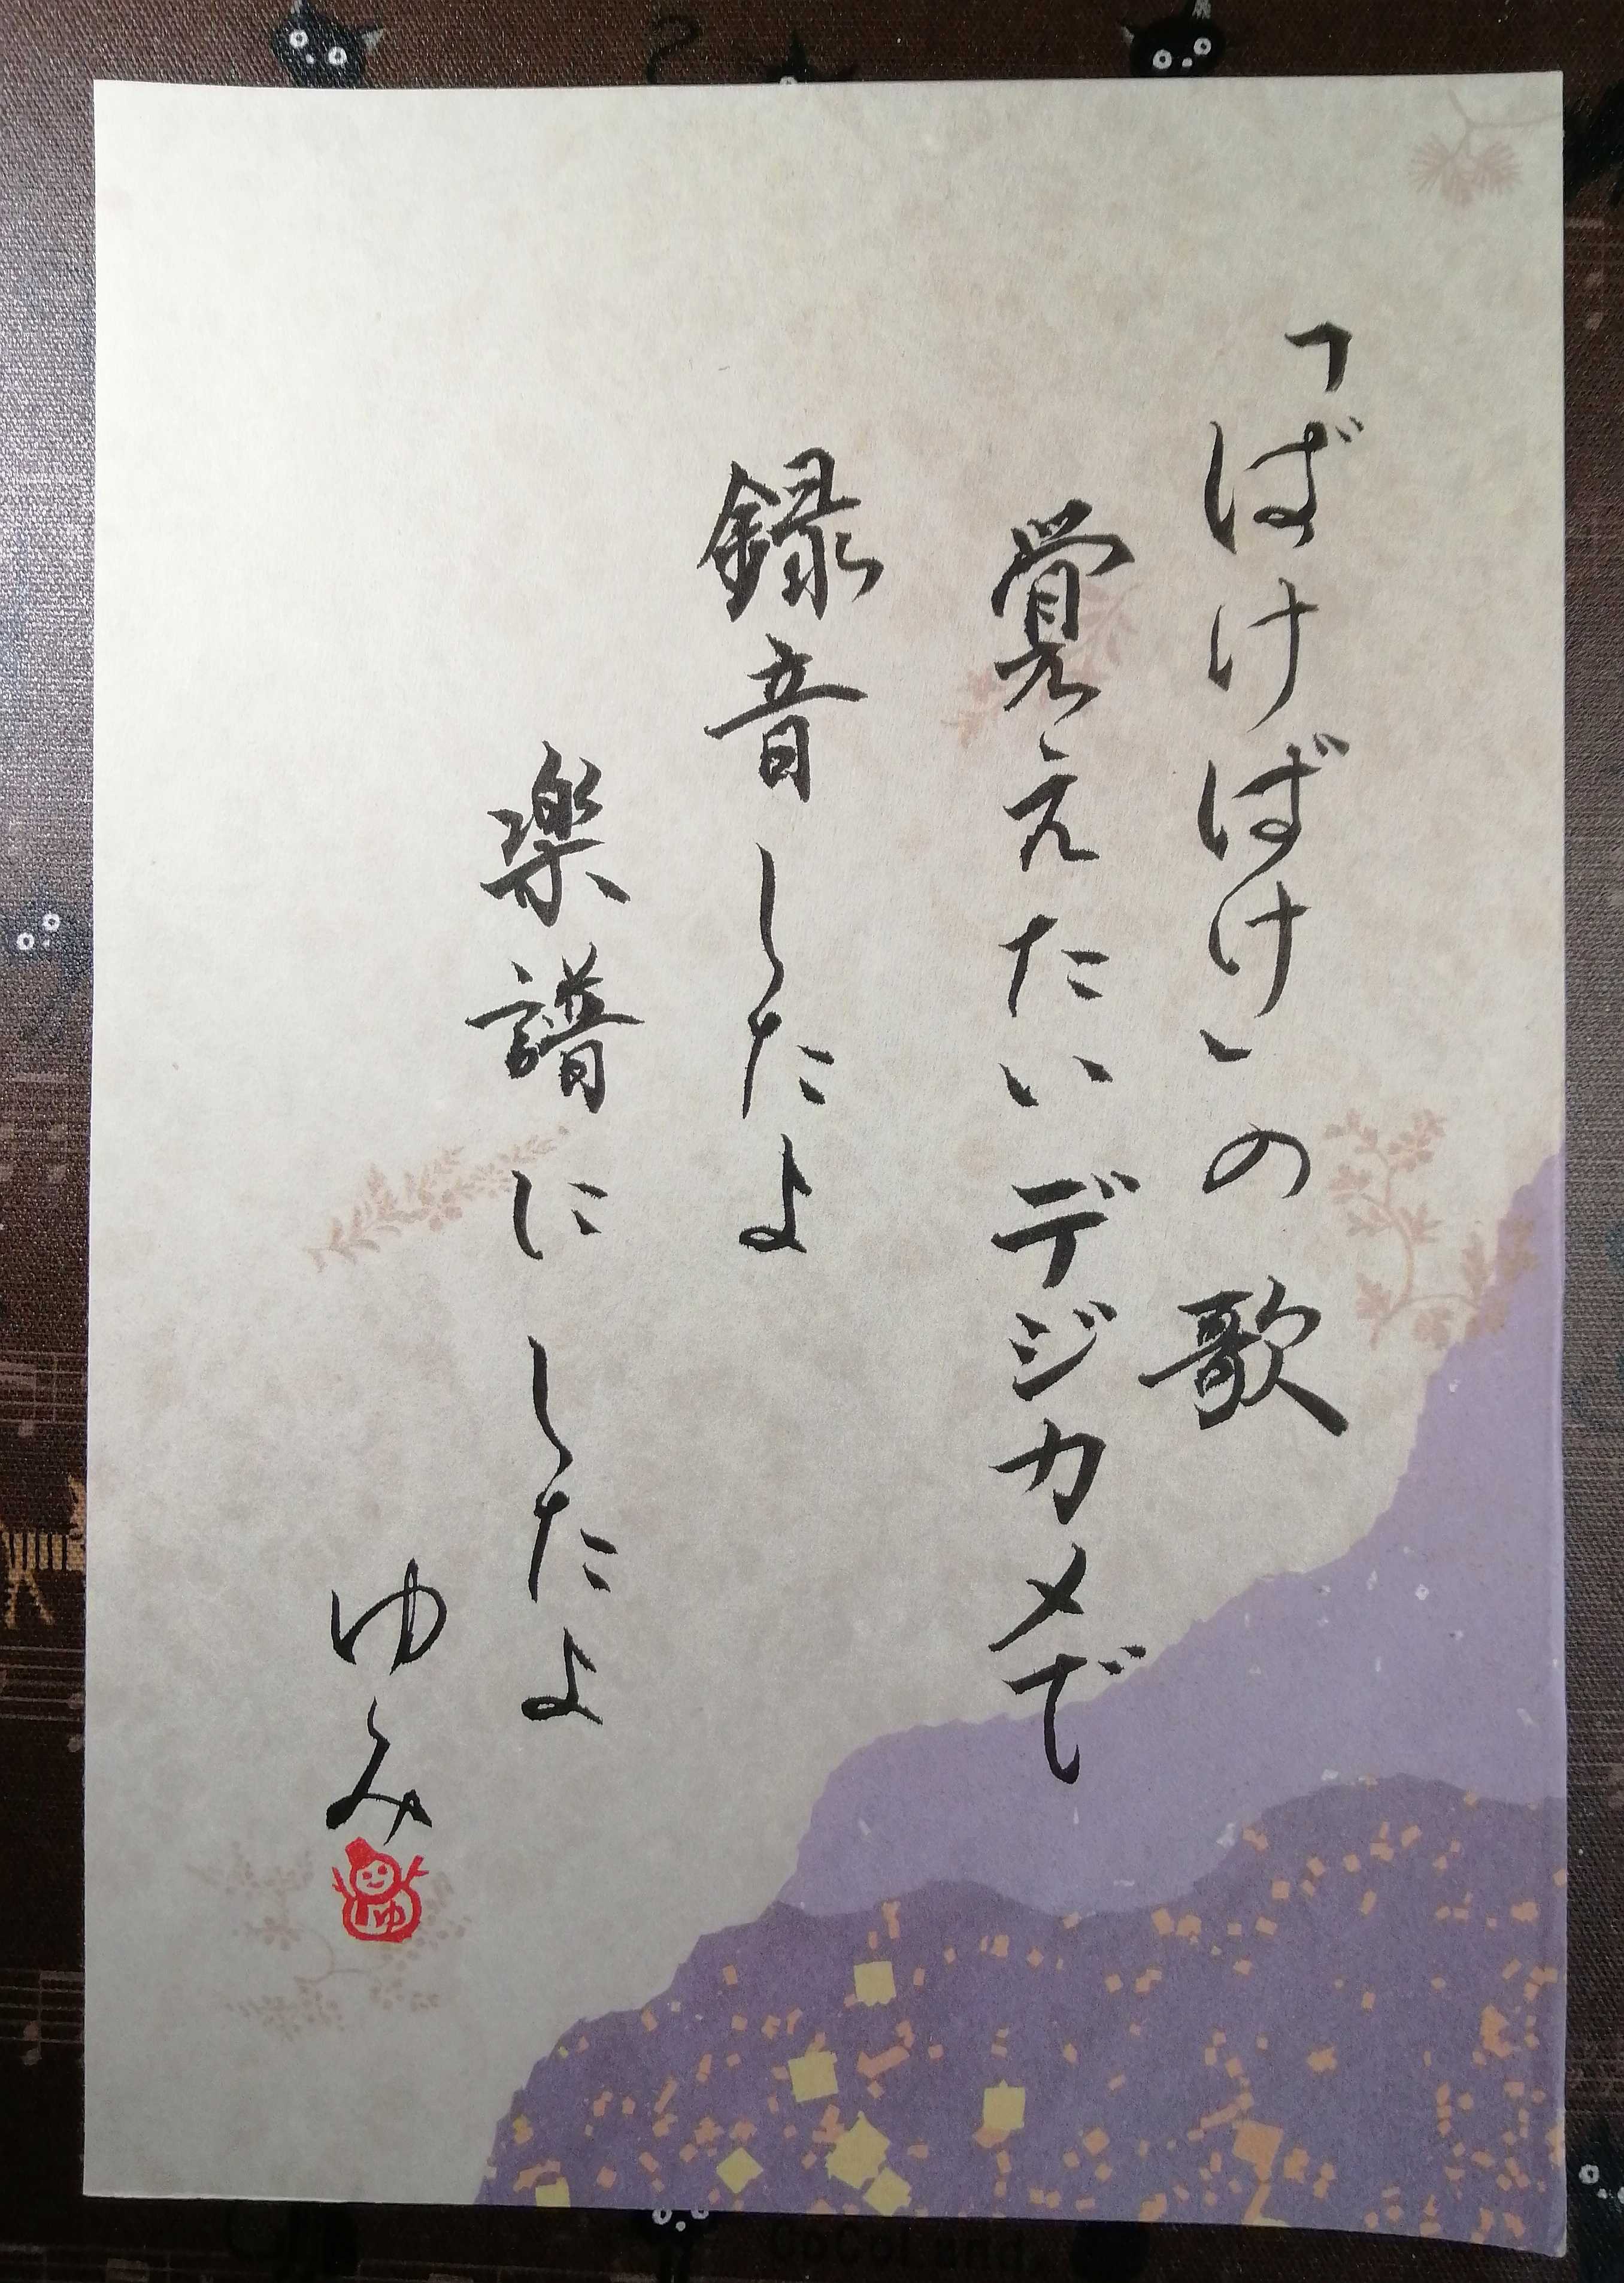 「ばけばけ」の歌
覚えたいデジカメで
録音したよ
楽譜にしたよ
ゆみ
ゆ